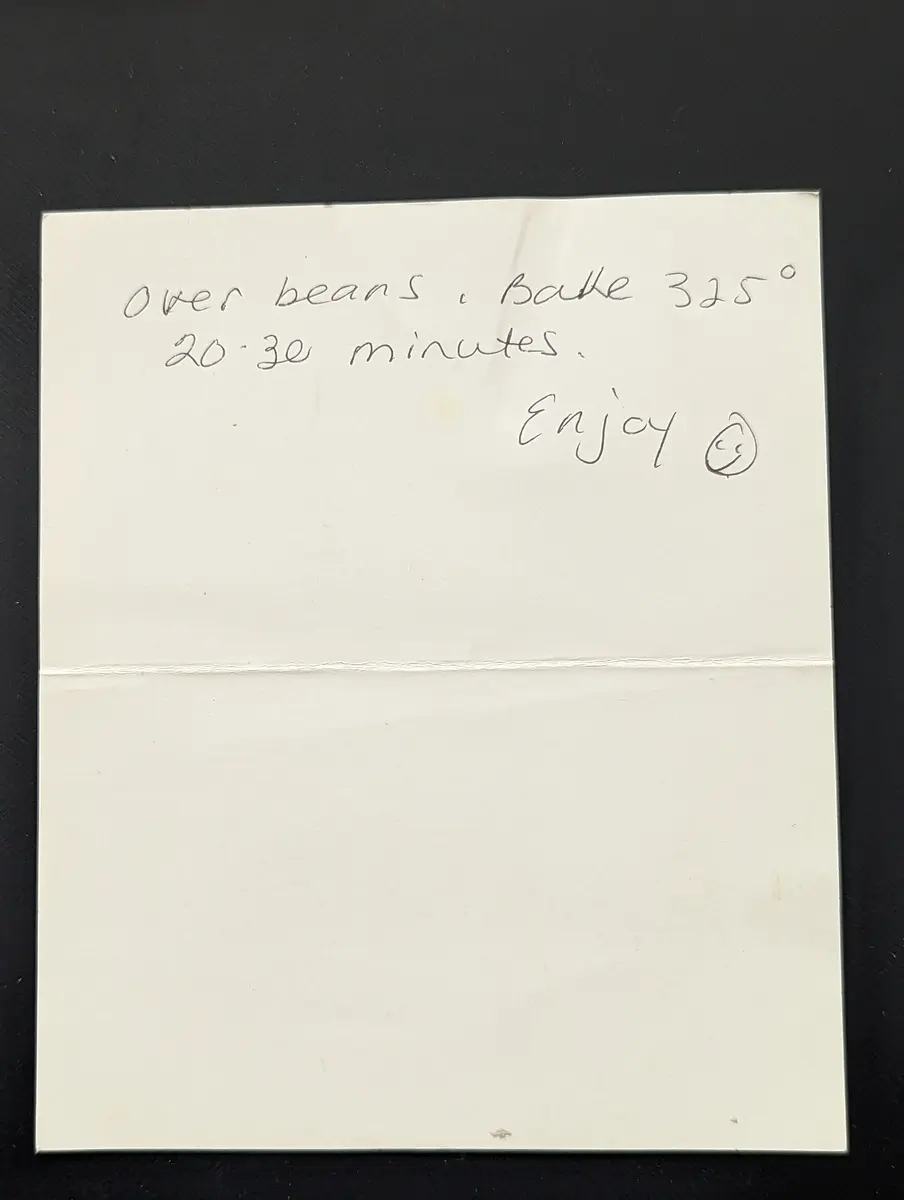 over beans. Bake 325°
20-30 minutes.
Enjoy ☺